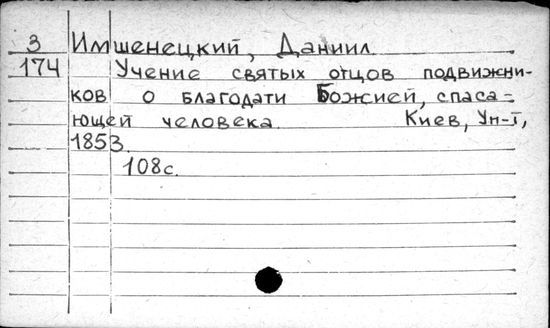 3 Имшенецкий, Даниил
174 Учение святых отцов подвижни-
ков о благодати Божией, спаса-
ющей человека. Киев, Ун-т,
1853.
108с.